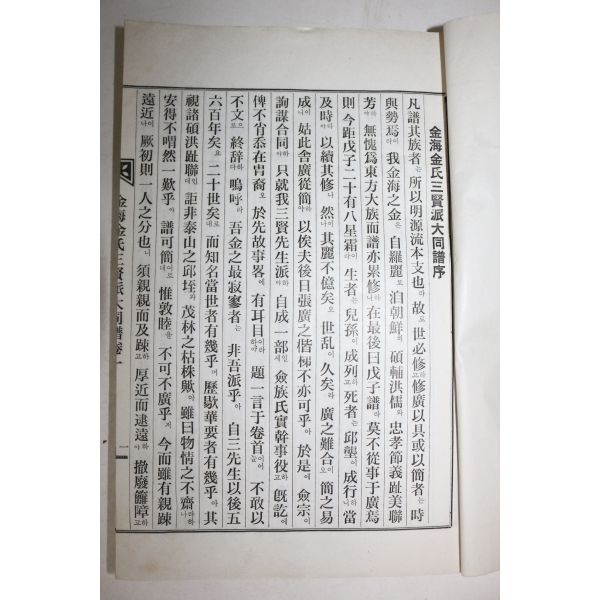 金海金氏三賢派大同譜序
凡譜其族者는 所以明源流本支也라 故로 世必修하고 修廣以具或以簡者는 時
與勢焉이라 我金海之金은 自羅麗로 洎朝鮮히 碩輔洪儒와 忠孝節義趾美聯
芳하야 無愧爲東方大族而譜亦累修하나 在最後曰戊子譜라 莫不從事于廣焉
則今距戊子二十有八星霜이라 生者는 兒孫이 成列하고 死者는 邱壟이 成行하니 當
及時하야 以續其修나 然이나 其麗不億矣오 世亂이 久矣라 廣之難合이오 簡之易
成이니 姑此舍廣從簡하야 以俟夫後日張廣之偕 不亦可乎아 於是에 僉宗이
詢謀合同하야 只就我三賢先生派하야 自成一部 僉族氏實幹事役하고 旣訖에
俾不肖忝在胄裔오 於先故事畧에 有耳目이라하야 題一言于卷首 不敢以
不文으로 終辞하다 嗚呼라 吾金之最寂寥者는 非吾派乎아 自三先生以後五
六百年矣오 二十世矣로대 而知名當世者有幾乎며 歷敭華要者有幾乎아 其
視諸碩洪趾聯 詎非泰山之邱垤와 茂林之枯株歟아 雖曰物情之不齋하나
安得不喟然一歎乎아 譜可簡이로대 惟敦睦을 不可不廣乎져 今而雖有親踈
遠近이나 厥初則一人之分也니 須親親而及踈하고 厚近而逮遠하야 撤廢籬障하고
金海金氏三賢派大同譜卷一
一